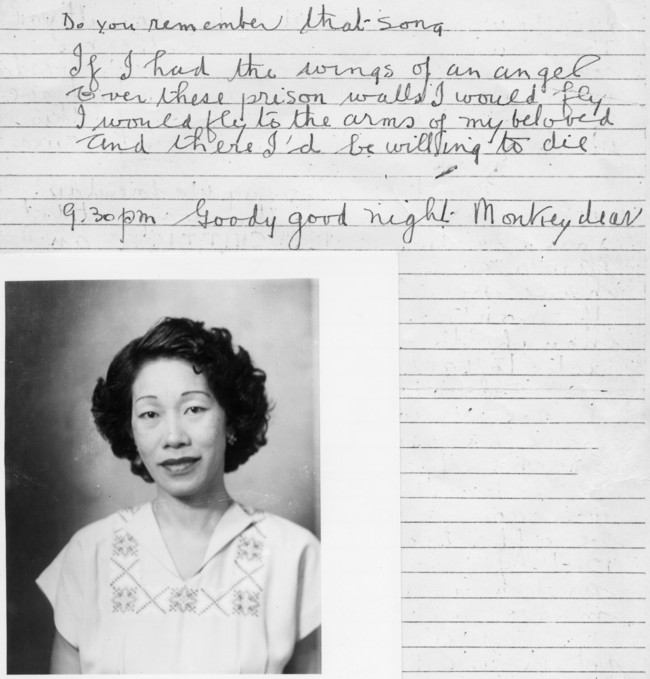 Do you remember that song
If I had the wings of an angel
Over these prison walls I would fly
I would fly to the arms of my beloved
and there I'd be willing to die
9.30pm Goody good night Monkey dear